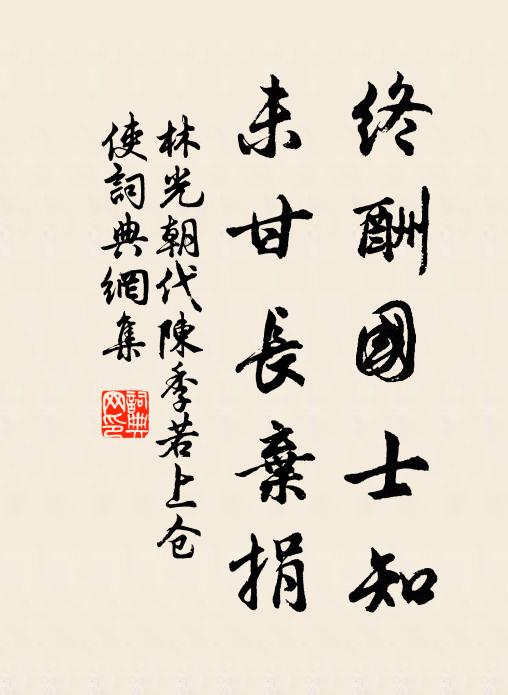 終酬國士知
未甘長棄捐
林光朝代陳季若上仓
使詞典網集
詞典
网印